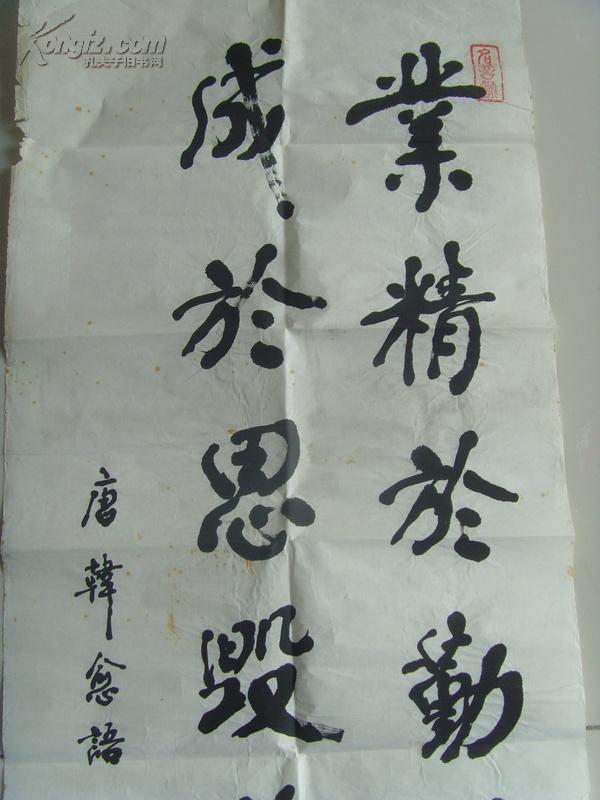 業精於勤
成於思毁
唐韓愈語
Kongfz.com
孔夫子旧书网